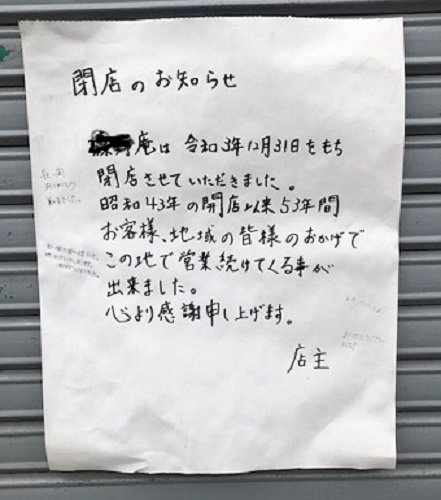 閉店のお知らせ
庵は 令和3年12月31日をもち
閉店させていただきました。
昭和43年の開店以来53年間
お客様、地域の皆様のおかげで
この地で営業続けてくる事が
出来ました。
心より感謝申し上げます。
店主